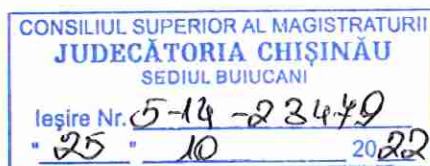 CONSILIUL SUPERIOR AL MAGISTRATURII
JUDECĂTORIA CHIȘINĂU
SEDIUL BUIUCANI
Ieșire Nr. 5-14-23479
" 25 " 10 2022